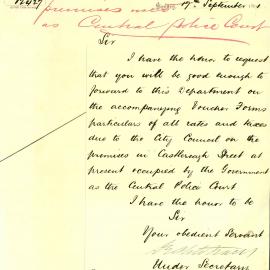 premises
17th September
as Central Police Court
Sir
I have the honor to request
that you will be good enough to
forward to this Department on
the accompanying Voucher Forms
particulars of all rates and taxes
due to the City Council on the
premises in Castlereagh Street at
present occupied by the Government
as the Central Police Court
I have the honor to be
Sir
Your obedient Servant
Under Secretary